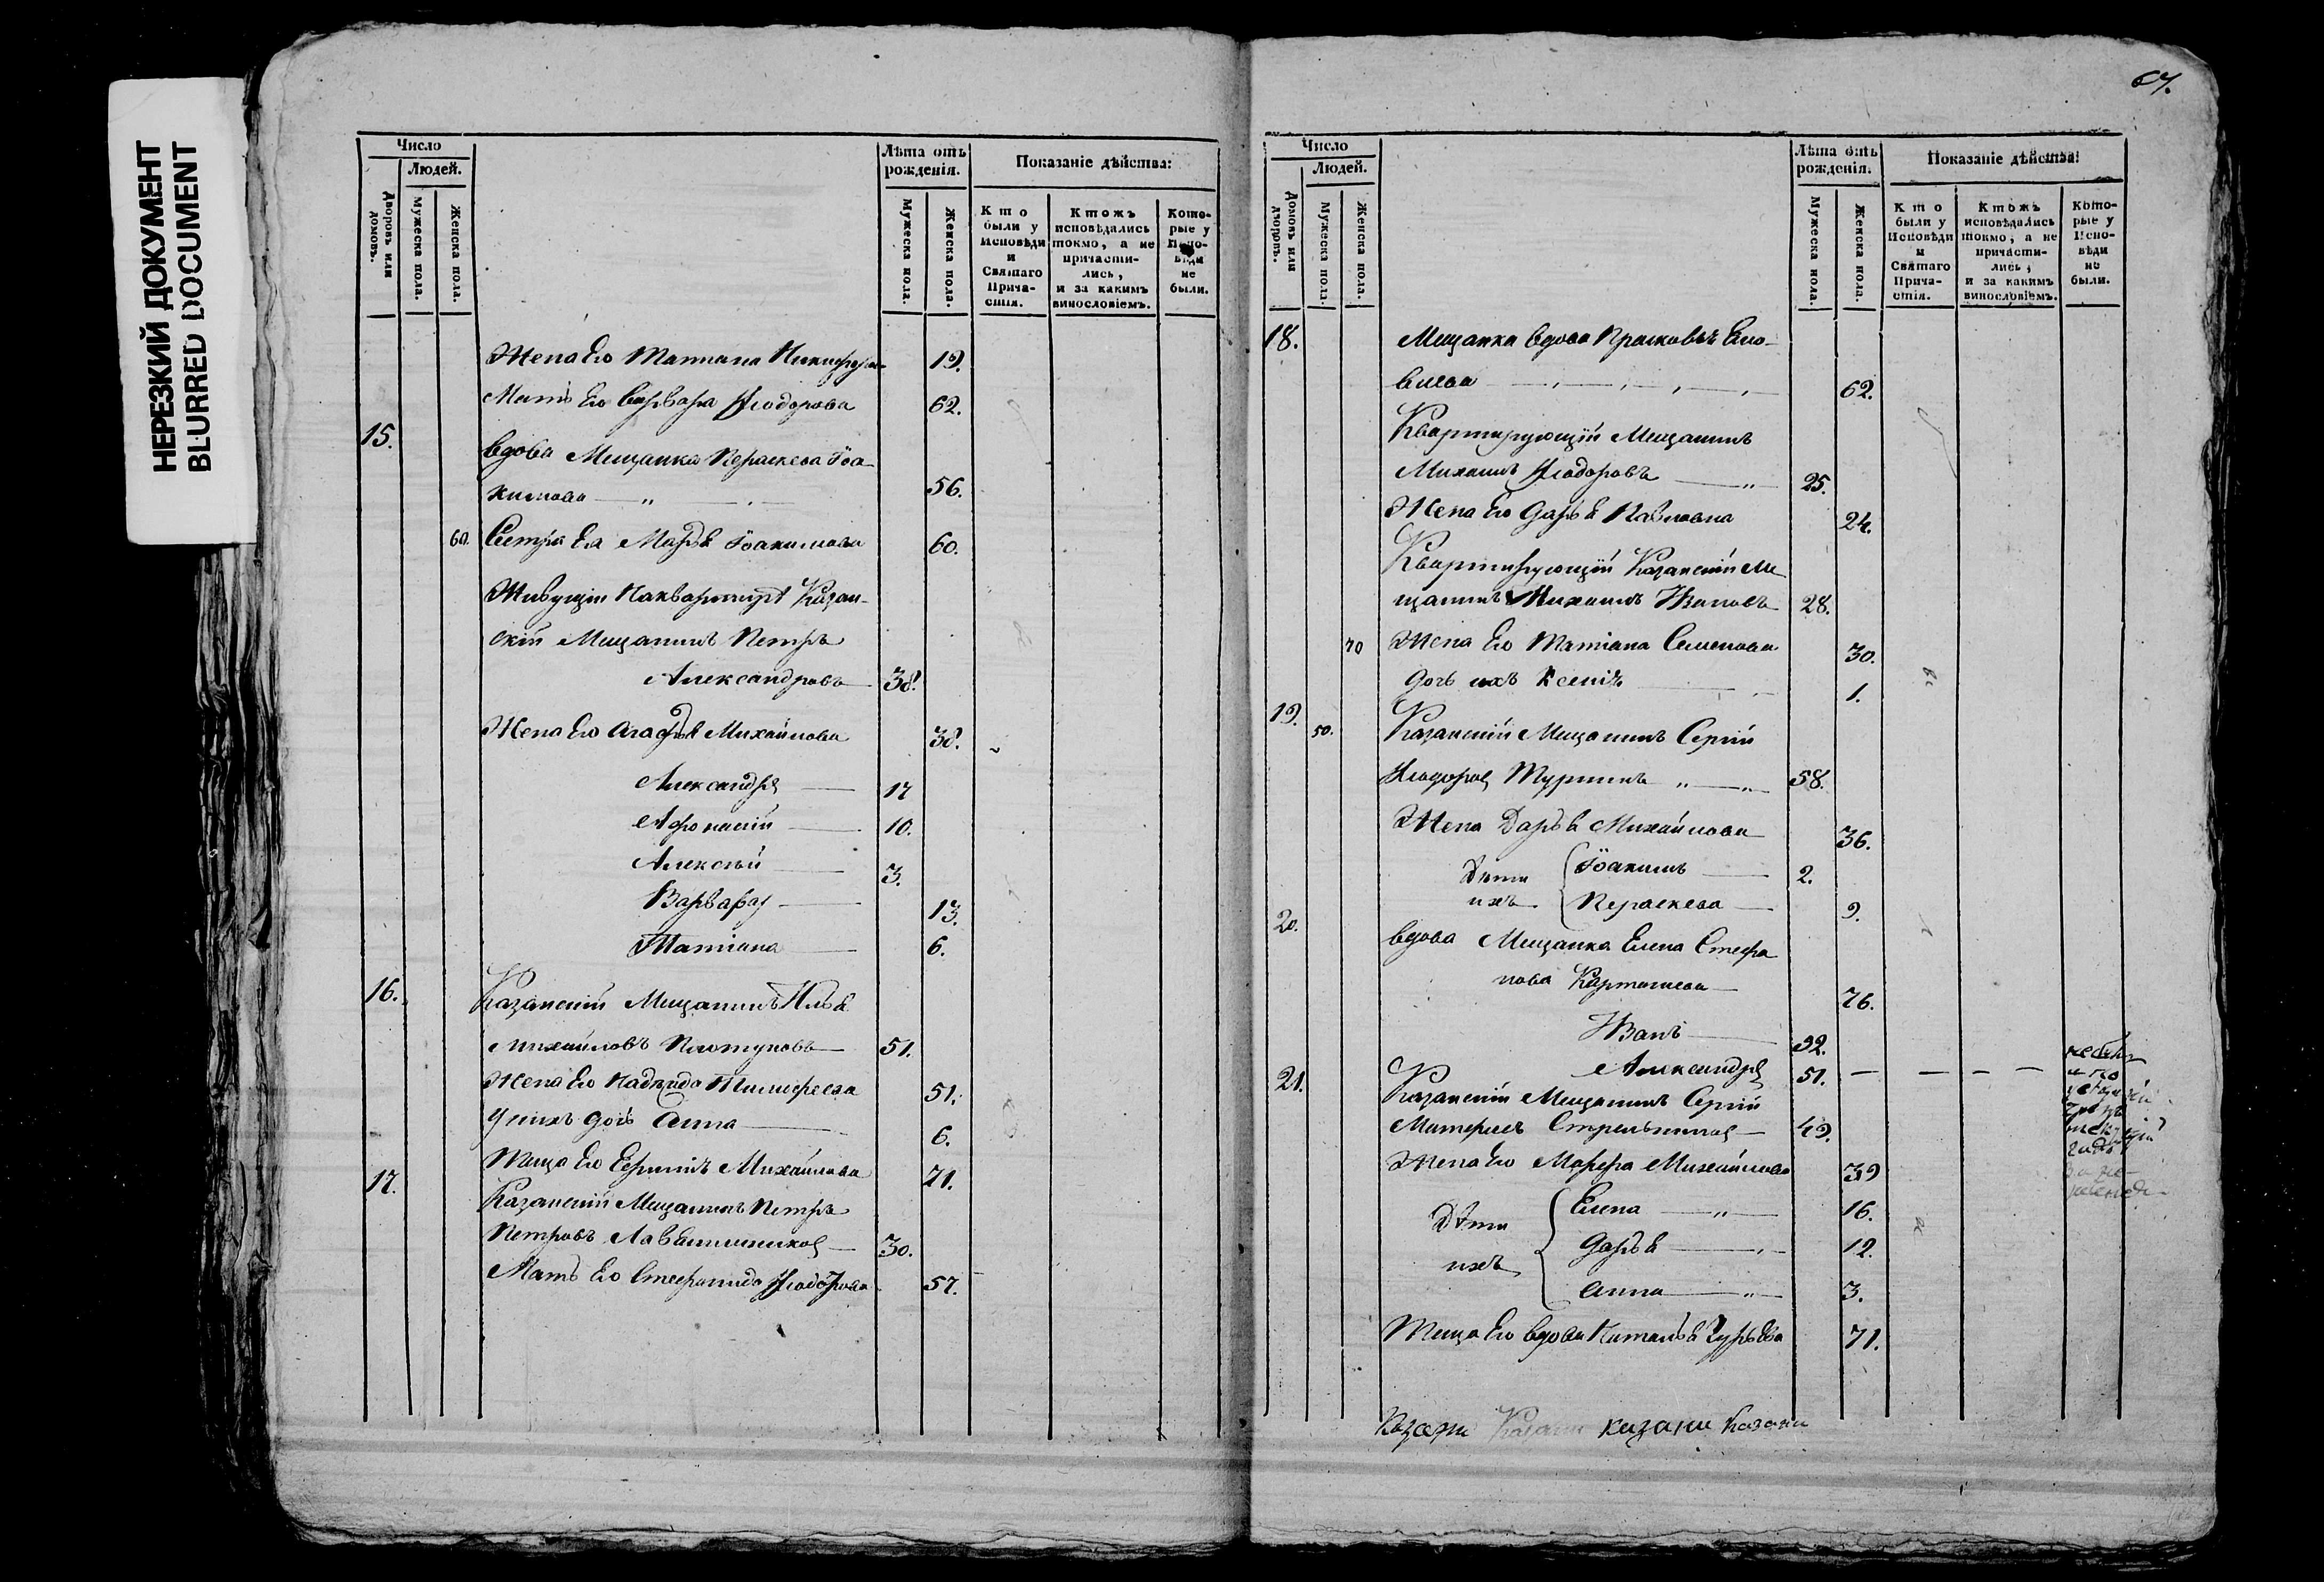 НЕРЕЗКИЙ ДОКУМЕНТ
BLURRED DOCUMENT
Число
Людей.
Дворовъ или домовъ.
Мужеска пола.
Женска пола.
Лѣта отъ рожденія.
Мужеска пола.
Женска пола.
Показаніе дѣйства:
Кто были у Исповѣди и Святаго Прича-стія.
Ктожъ исповѣдались токмо, а не причасти-лись, и за какимъ винословіемъ.
Кото-рые у Испо-вѣди не были.
Жена Его Татіана Никифоро- 19.
Мать Его Варвара Ѳеодорова 62.
15. Вдова Мещанка Параскева Іоа-
кимова 56.
60. Сестра Ея Марѳа Іоакимова 60.
Живущій На квартирѣ Казан-
скій Мещанинъ Петръ
Александровъ 38.
Жена Его Агафья Михайлова 38.
Александръ 17
Афонасій 10.
Алексѣй 3.
Варвара 13.
Татіана 6.
16. Казанскій Мещанинъ Илья
Михайловъ 51.
Жена Его Надежда 51.
У нихъ дочь Анна 6.
Теща Его Ефимія Михайлова 71.
17. Казанскій Мещанинъ Петръ
Петровъ 30.
Мать Его Стефанида Ѳеодорова 57.
67.
Число
Людей.
Домовъ или дворовъ.
Мужеска пола.
Женска пола.
Лѣта отъ рожденія.
Мужеска пола.
Женска пола.
Показаніе дѣйства:
Кто были у Исповѣди и Святаго Прича-стія.
Ктожъ исповѣдались токмо, а не причасти-лись, и за какимъ винословіемъ.
Кото-рые у Испо-вѣди не были.
18. Мещанка вдова Прасковья
62.
Квартирующій Мещанинъ
Михаилъ Ѳеодоровъ 25.
Жена Его Дарья Павловна 24.
Квартирующій Казанскій Ме
щанинъ Михаилъ Ивановъ 28.
70 Жена Его Татіана Семенова 30.
Дочь ихъ Ксенія 1.
19. 50. Казанскій Мещанинъ Сергій
Ѳеодоровъ 58.
Жена Дарья Михайлова 36.
Дѣти ихъ Іоакимъ 2.
Параскева 9.
20. Вдова Мещанка Елена Стефа
нова 76.
Иванъ 32.
Александръ 51.
21. Казанскій Мещанинъ Сергій
Матвеевъ Стрельниковъ 49.
Жена Его Марфа Михайлова 39
Дѣти ихъ Елена 16.
Дарья 12.
Анна 3.
Теща Его вдова Наталья Гурьева 71.
Казани Казани казани Казани